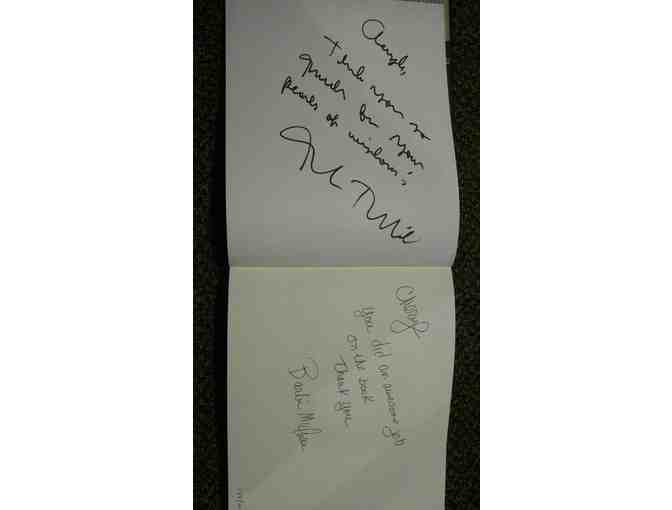 Cheryl,
Thank you so
much for your
pearls of wisdom!
Cheryl
you did an awesome job
on the book
Thank you
Barbie